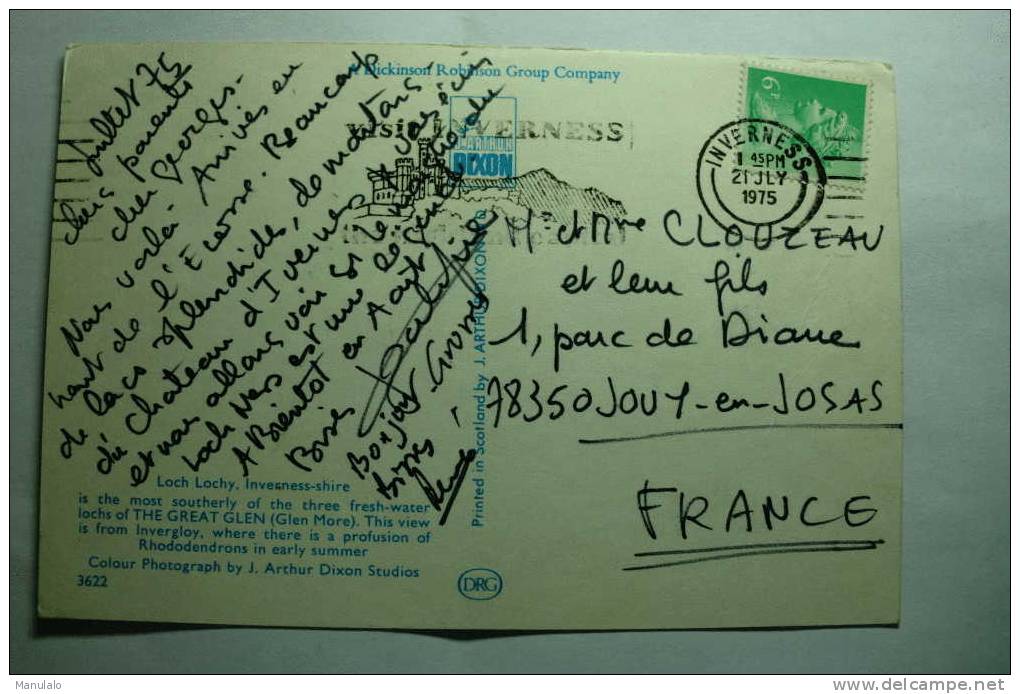 A Dickinson Robinson Group Company
J. ARTHUR
DIXON
visit INVERNESS
6P
INVERNESS
1 45PM
21 JLY
1975
Juillet 75
Chers parents
cher Georges.
Nous voilà Arrivés en
haut de l'Ecosse. Beaucoup
de lacs splendides, de moutons
du chateau d'Inverness
et nous allons voir si le
Loch Ness est une
A Bientôt en Aout
Bises
Bonjour
Bises
Mr et Mme CLOUZEAU
et leur fils
1, parc de Diane
78350 JOUY-en-JOSAS
FRANCE
Printed in Scotland by J. ARTHUR DIXON LTD
Loch Lochy, Inverness-shire
is the most southerly of the three fresh-water
lochs of THE GREAT GLEN (Glen More). This view
is from Invergloy, where there is a profusion of
Rhododendrons in early summer
Colour Photograph by J. Arthur Dixon Studios
3622
DRG
Manulalo
www.delcampe.net